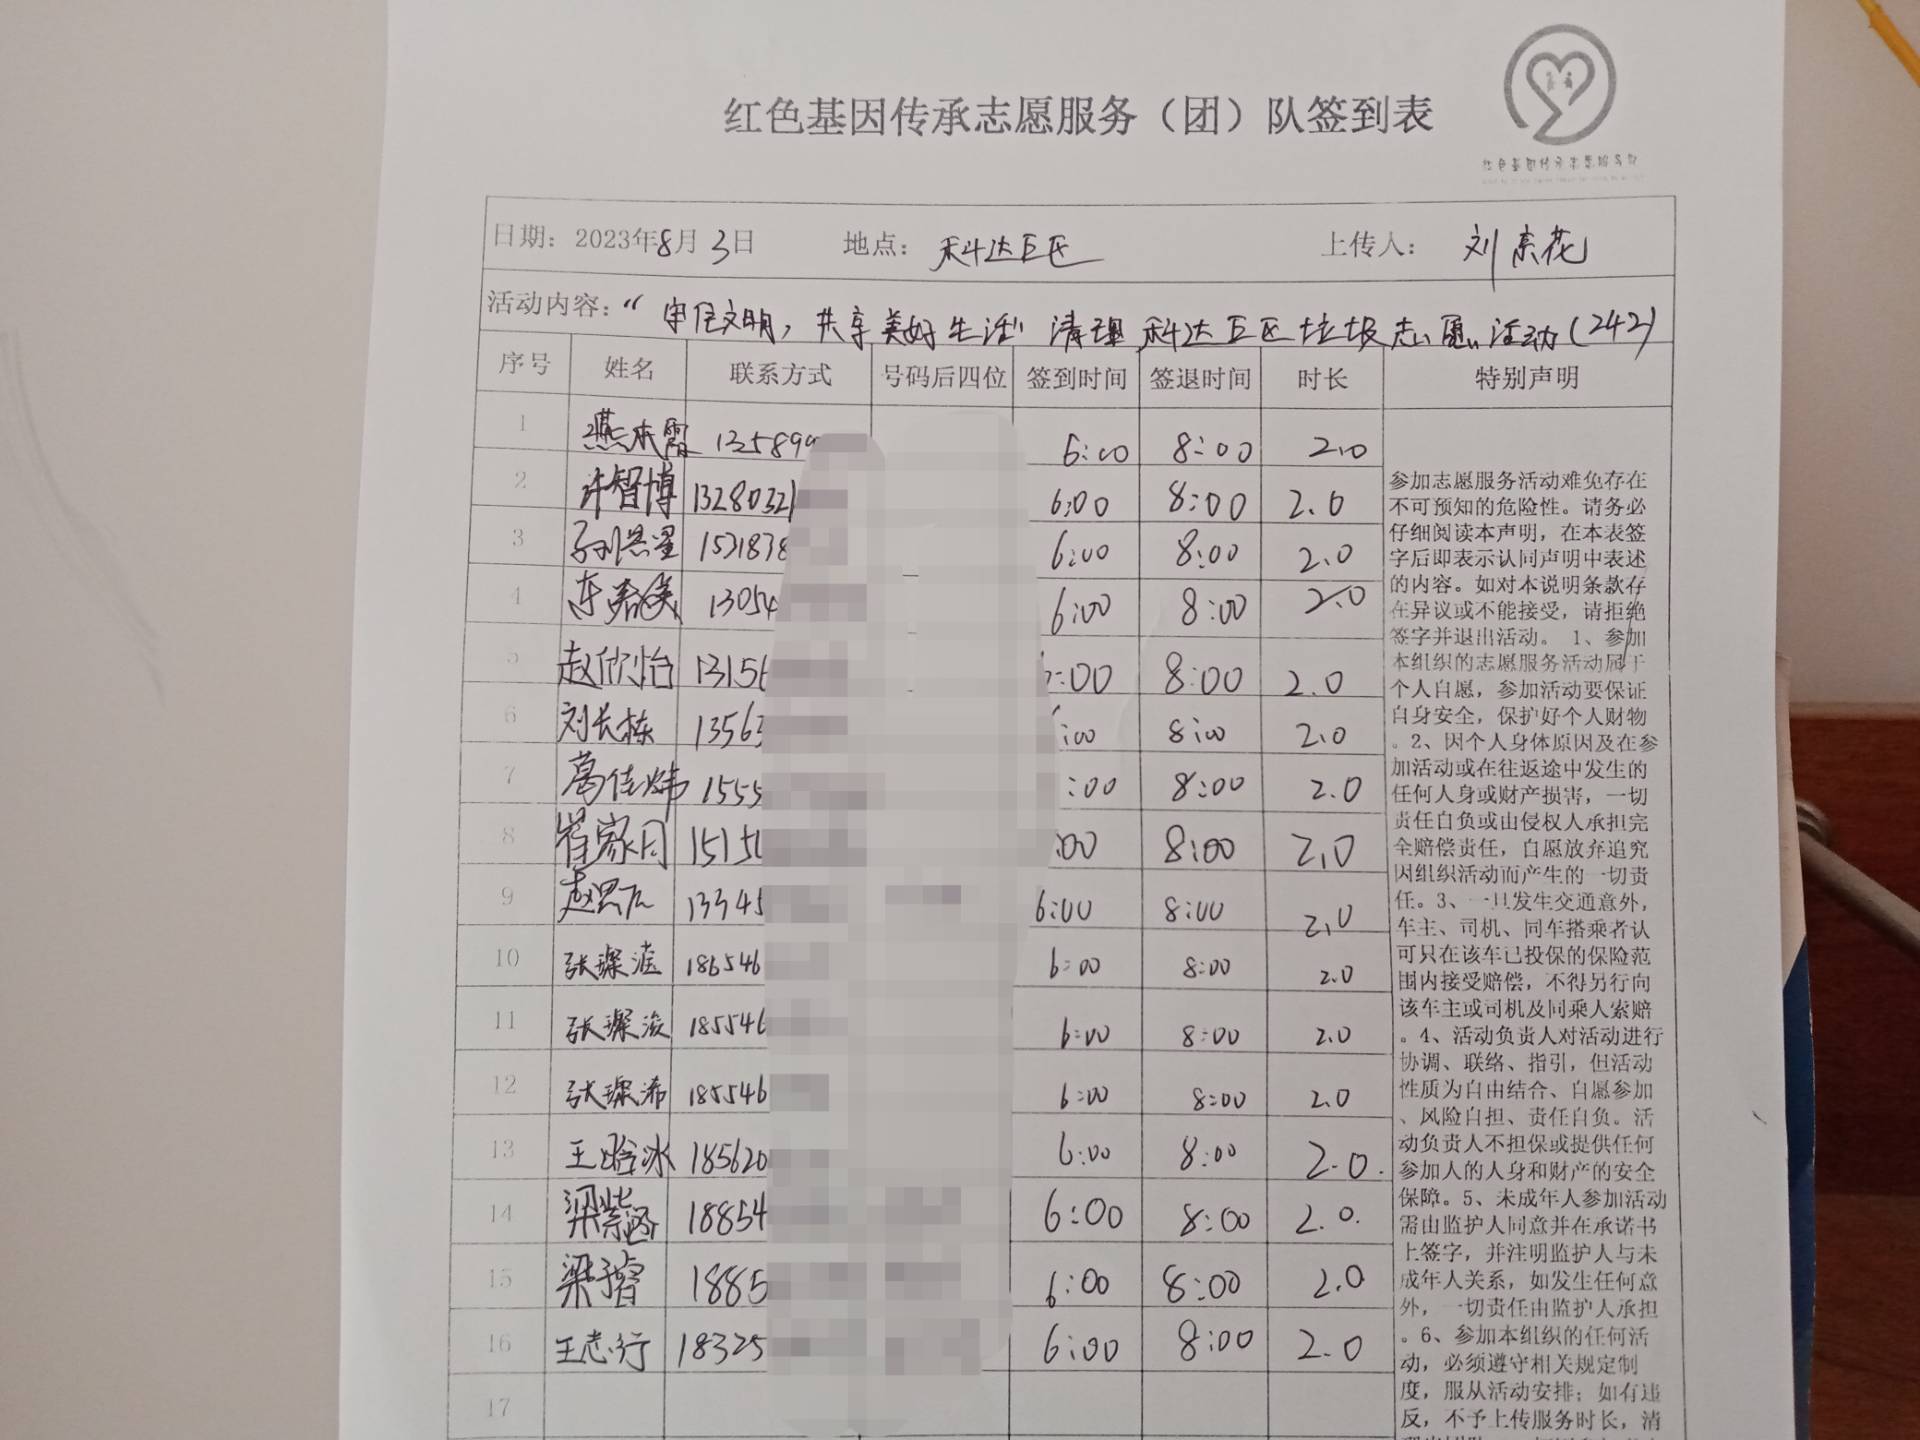 红色基因传承志愿服务（团）队签到表
红色基因传承志愿服务队
日期：2023年8月3日 地点：科达巨区 上传人：刘京花
活动内容："守住文明，共享美好生活"清理科达巨区垃圾志愿活动（242）
序号 姓名 联系方式 号码后四位 签到时间 签退时间 时长 特别声明
1 燕本霞 135899 6:00 8:00 2.0
2 许智博 13280321 6:00 8:00 2.0
3 1521838 6:00 8:00 2.0
4 13054 6:00 8:00 2.0
5 赵欣怡 13156 :00 8:00 2.0
6 刘长栋 13563 :00 8:00 2.0
7 葛佳炜 1555 :00 8:00 2.0
8 崔家月 1515 :00 8:00 2.0
9 赵 13345 6:00 8:00 2.0
10 张琛 186546 6:00 8:00 2.0
11 张琛浚 185546 6:00 8:00 2.0
12 张琛希 185546 6:00 8:00 2.0
13 王晗冰 185620 6:00 8:00 2.0.
14 梁紫涵 18854 6:00 8:00 2.0.
15 梁子睿 1885 6:00 8:00 2.0
16 王志行 18325 6:00 8:00 2.0
17
参加志愿服务活动难免存在
不可预知的危险性。请务必
仔细阅读本声明，在本表签
字后即表示认同声明中表述
的内容。如对本说明条款存
在异议或不能接受，请拒绝
签字并退出活动。 1、参加
本组织的志愿服务活动属于
个人自愿，参加活动要保证
自身安全，保护好个人财物
。2、因个人身体原因及在参
加活动或在往返途中发生的
任何人身或财产损害，一切
责任自负或由侵权人承担完
全赔偿责任，自愿放弃追究
因组织活动而产生的一切责
任。3、一旦发生交通意外，
车主、司机、同车搭乘者认
可只在该车已投保的保险范
围内接受赔偿，不得另行向
该车主或司机及同乘人索赔
。4、活动负责人对活动进行
协调、联络、指引，但活动
性质为自由结合、自愿参加
、风险自担、责任自负。活
动负责人不担保或提供任何
参加人的人身和财产的安全
保障。5、未成年人参加活动
需由监护人同意并在承诺书
上签字，并注明监护人与未
成年人关系，如发生任何意
外，一切责任由监护人承担
。6、参加本组织的任何活
动，必须遵守相关规定制
度，服从活动安排；如有违
反，不予上传服务时长，清